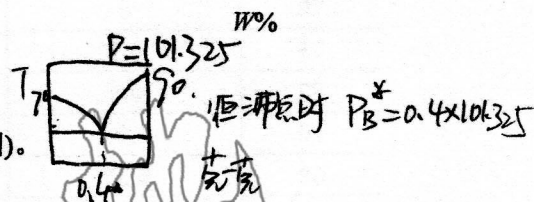 W%
P=101.325
T 70 90.
恒沸点时 P_B^*=0.4×101.325
1)。
0.4